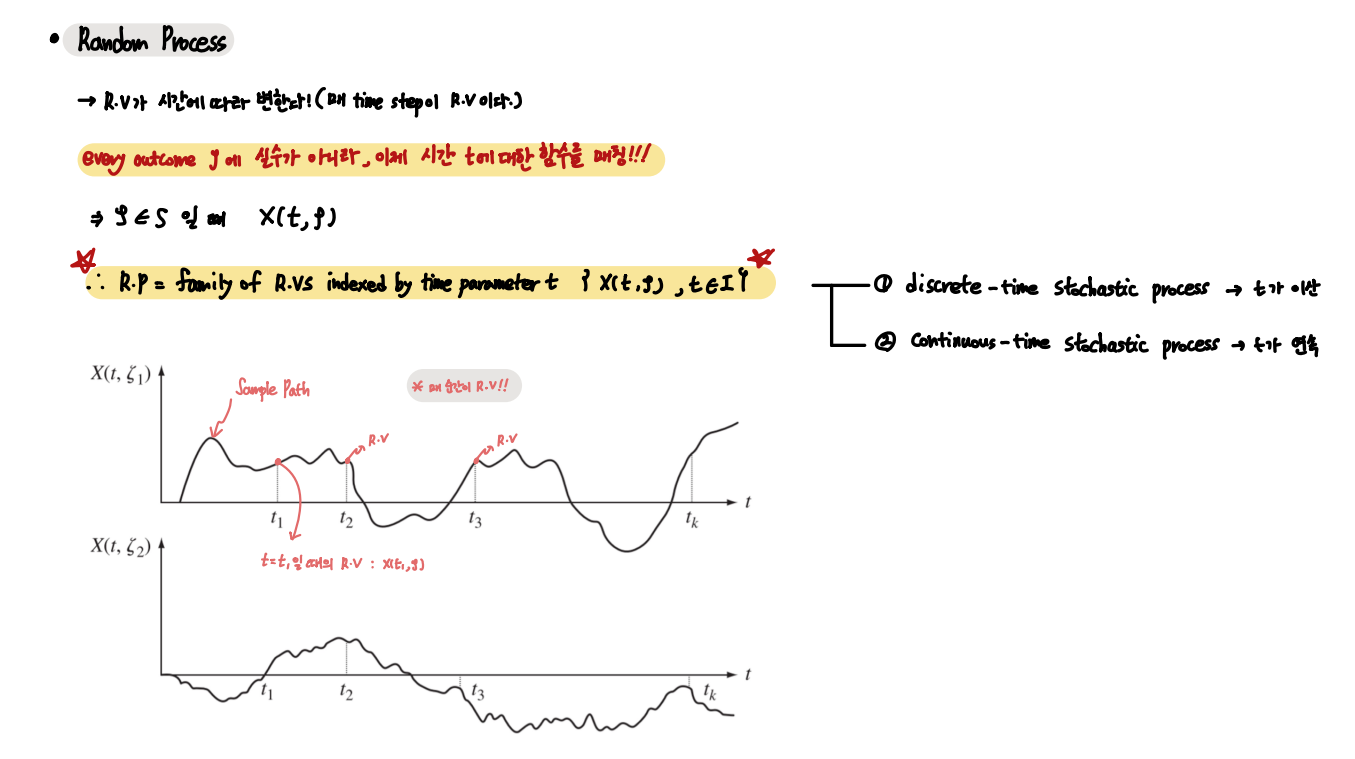 • Random Process
→ R.V가 시간에 따라 변한다! (매 time step이 R.V이다.)
every outcome ζ에 실수가 아니라, 이제 시간 t에 대한 함수를 매칭!!!
⇒ ζ ∈ S 일 때 X(t, ζ)
∴ R.P = family of R.Vs indexed by time parameter t { X(t, ζ), t ∈ I }
① discrete-time stochastic process → t가 이산
② continuous-time stochastic process → t가 연속
X(t, ζ1)
Sample Path
* 매 순간이 R.V!!
R.V
R.V
t
t1 t2 t3 tk
t=t1일 때의 R.V : X(t1, ζ)
X(t, ζ2)
t
t1 t2 t3 tk